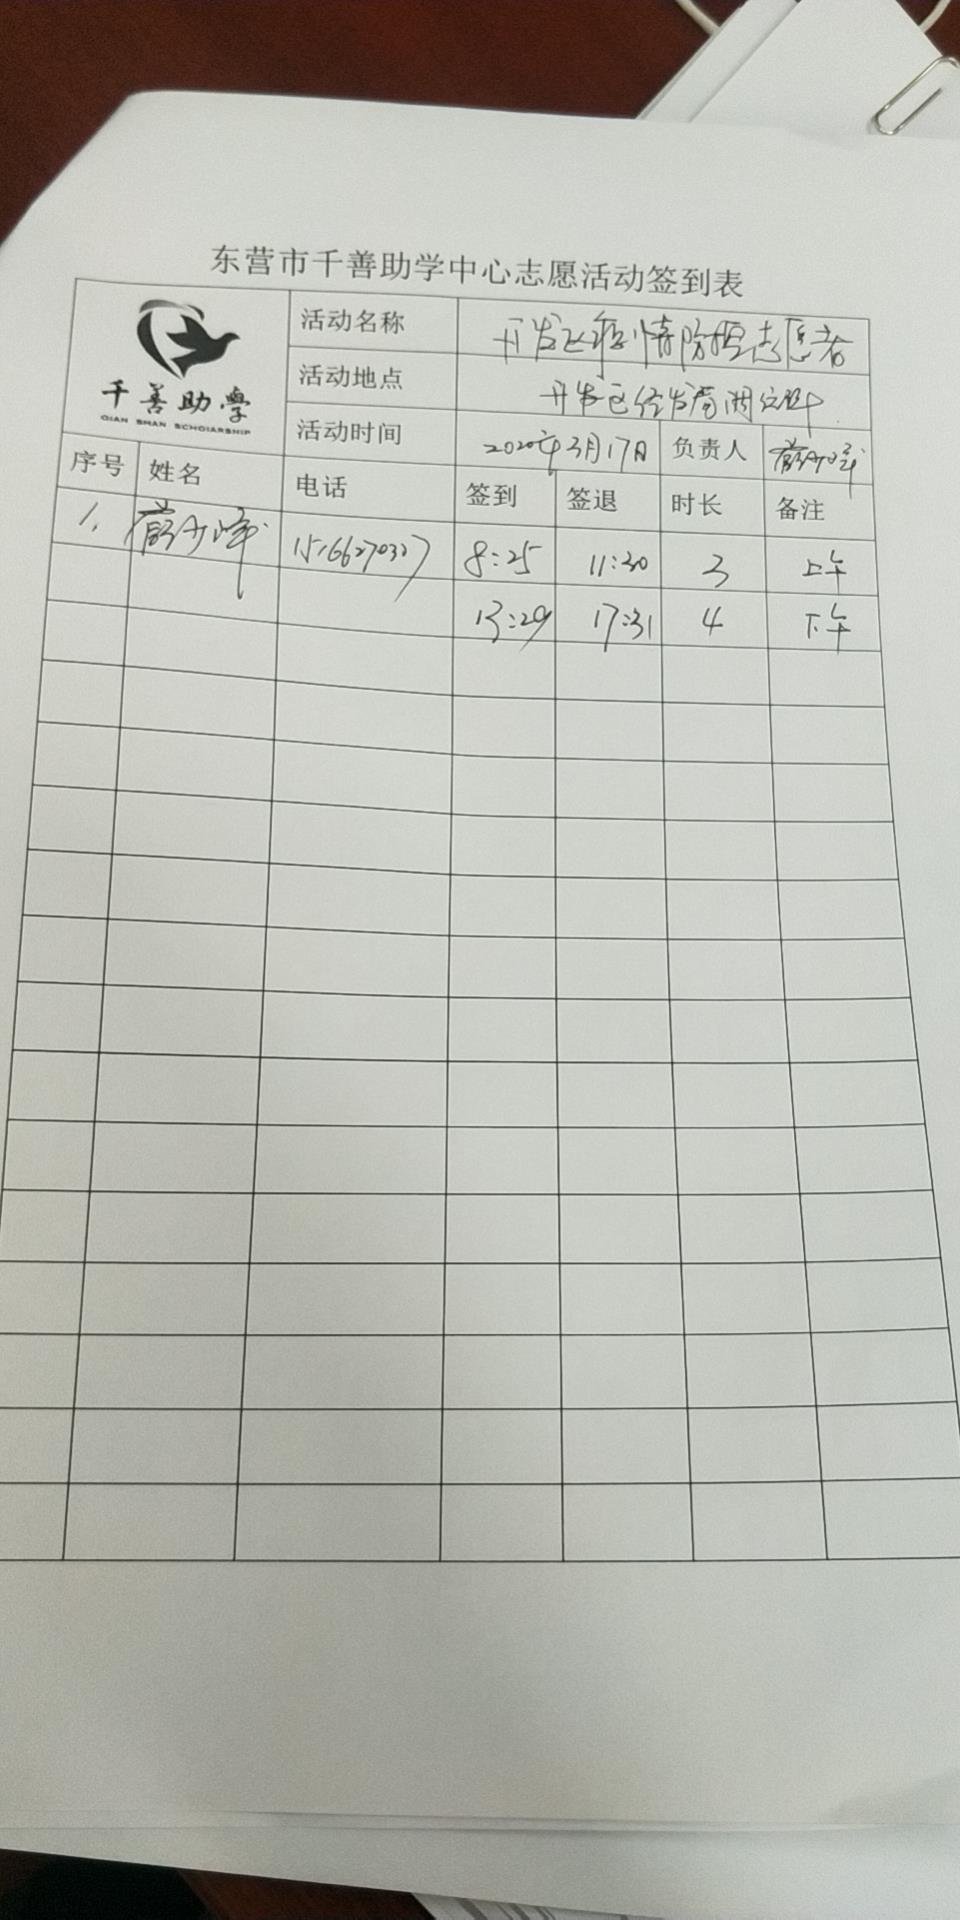 东营市千善助学中心志愿活动签到表
千善助学
QIAN SHAN SCHOIARSHIP
活动名称 开发区疫情防控志愿者
活动地点 开发区经发局
活动时间 2020年3月17日 负责人
序号 姓名 电话 签到 签退 时长 备注
1. 15166270327 8:25 11:30 3 上午
13:29 17:31 4 下午